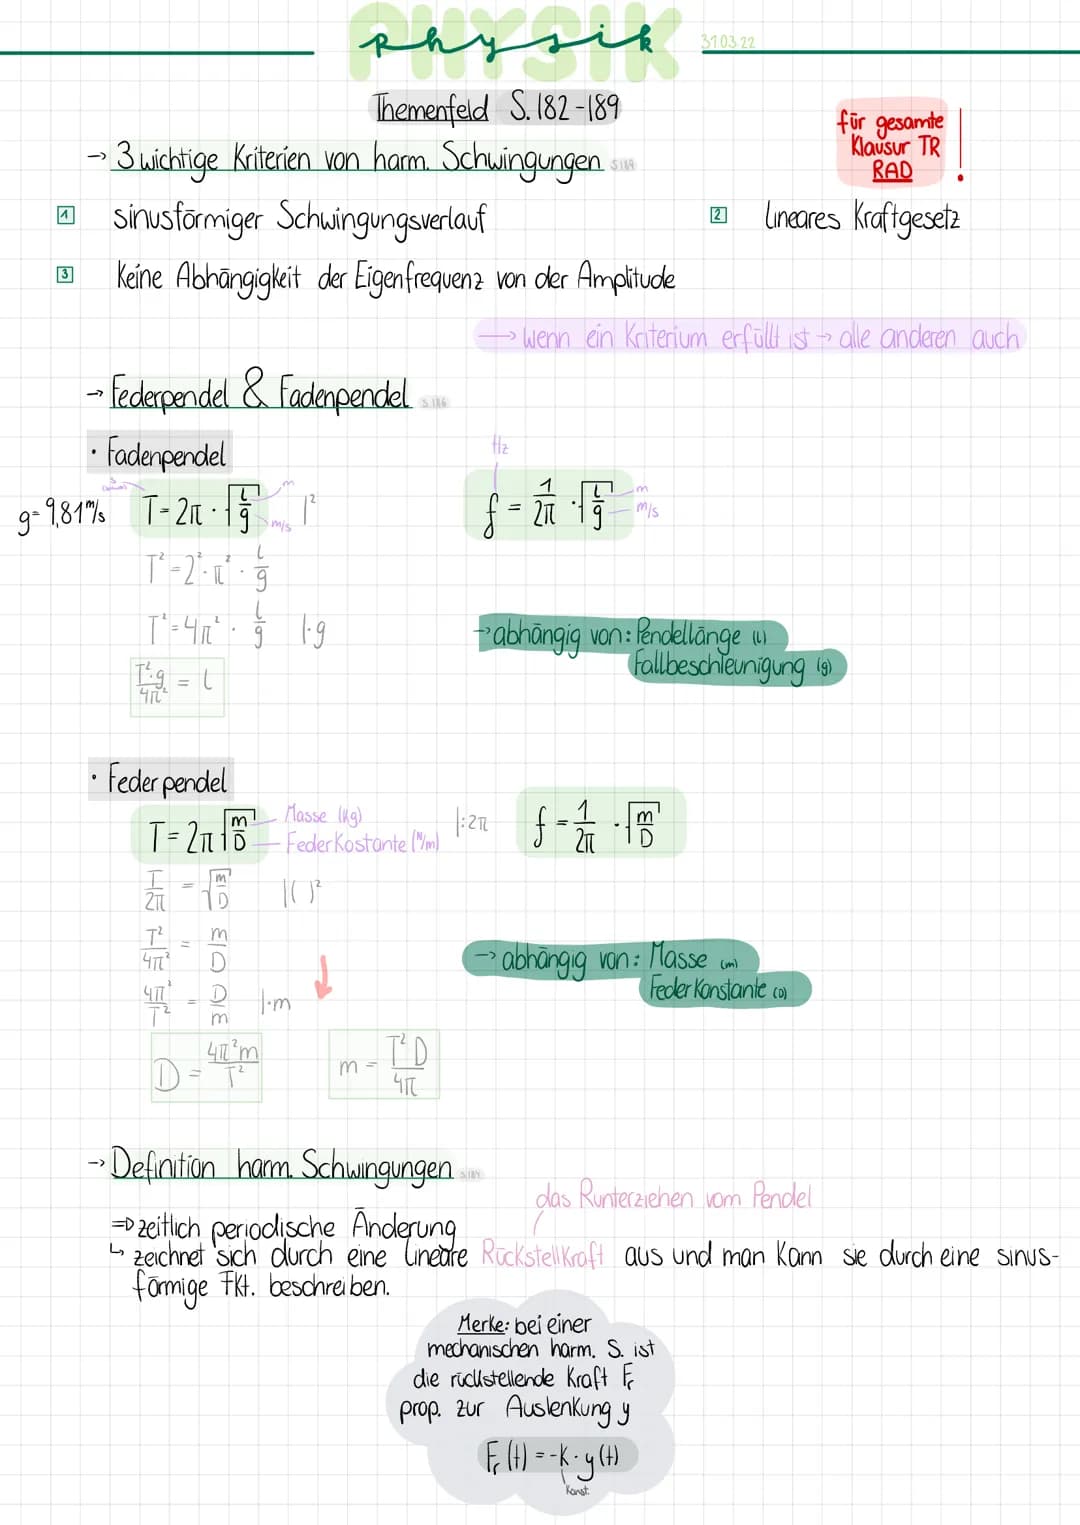 PHYSIK
physik
31.03.22
Themenfeld S. 182-189
für gesamte
Klausur TR
RAD
!
→ 3 wichtige Kriterien von harm. Schwingungen S.189
1 sinusförmiger Schwingungsverlauf
2 lineares Kraftgesetz
3 Keine Abhängigkeit der Eigenfrequenz von der Amplitude
→ wenn ein Kriterium erfüllt ist → alle anderen auch
→ Federpendel & Fadenpendel S.186
• Fadenpendel
Hz
s
g=9,81 m/s
T = 2π · √(l/g) |²
m
m/s
f = 1/2π · √(l/g)
m
m/s
T² = 2² · π² · l/g
T² = 4π² · l/g |·g
T²·g/4π² = l
→ abhängig von: Pendellänge (l)
Fallbeschleunigung (g)
• Federpendel
T = 2π √(m/D) |:2π
Masse (kg)
FederKostante (N/m)
f = 1/2π · √(m/D)
T/2π = √(m/D) |( )²
T²/4π² = m/D
4π²/T² = D/m |·m
D = 4π²m/T²
m = T²D/4π
→ abhängig von: Masse (m)
FederKonstante (D)
→ Definition harm. Schwingungen S.184
das Runterziehen vom Pendel
⇒ zeitlich periodische Änderung
↳ zeichnet sich durch eine lineare RückstellKraft aus und man Kann sie durch eine sinus-
förmige Fkt. beschreiben.
Merke: bei einer
mechanischen harm. S. ist
die rückstellende Kraft Fr
prop. zur Auslenkung y
Fr(t) = -K · y(t)
Konst.